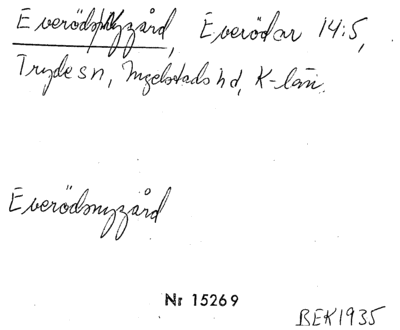 Everödsnygård, Everödar 14:5,
Tryde sn, Ingelstads hd, K-län.
Everödsnygård
Nr 15269
BEK1935